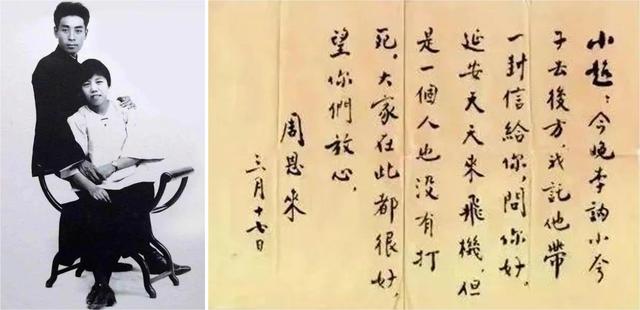 小超：今晚李訥小夸
子去後方，我託他帶
一封信給你，問你好。
延安天天來飛機，但
是一個人也没有打
死。大家在此都很好，
望你們放心。
周恩來
三月十七日